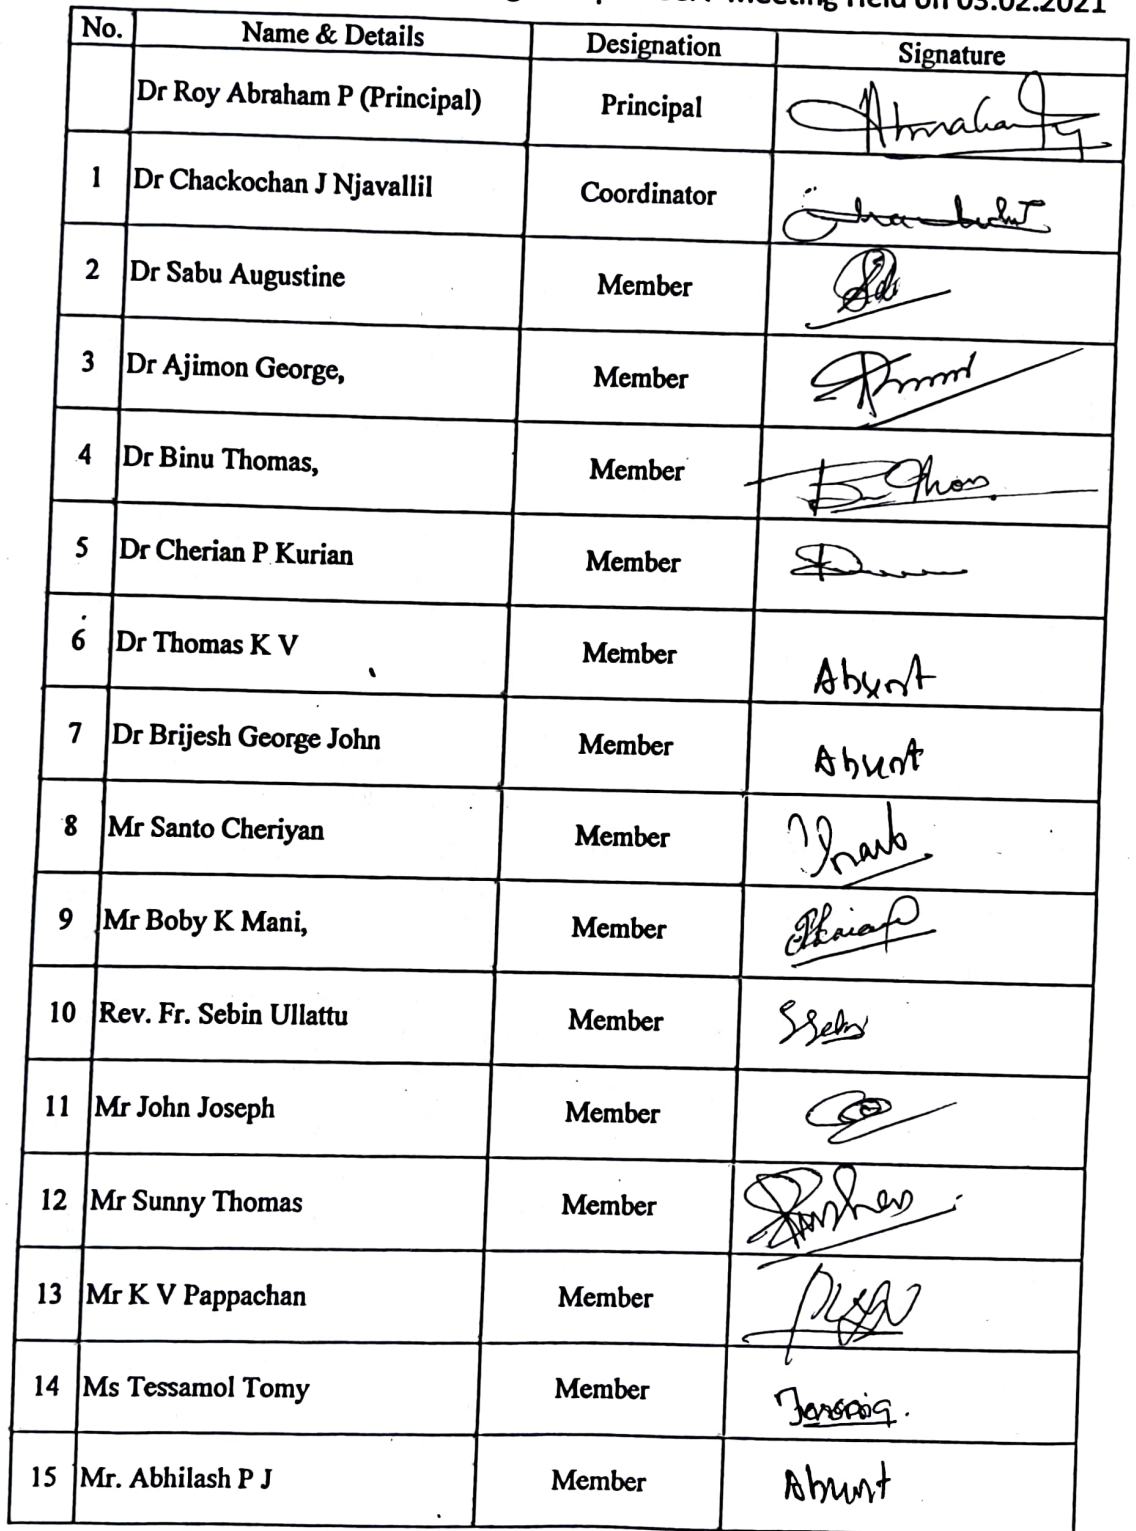 Meeting Held on 03.02.2021
No. Name & Details Designation Signature
Dr Roy Abraham P (Principal) Principal
1 Dr Chackochan J Njavallil Coordinator
2 Dr Sabu Augustine Member
3 Dr Ajimon George, Member
4 Dr Binu Thomas, Member
5 Dr Cherian P Kurian Member
6 Dr Thomas K V Member Absent
7 Dr Brijesh George John Member Absent
8 Mr Santo Cheriyan Member
9 Mr Boby K Mani, Member
10 Rev. Fr. Sebin Ullattu Member
11 Mr John Joseph Member
12 Mr Sunny Thomas Member
13 Mr K V Pappachan Member
14 Ms Tessamol Tomy Member
15 Mr. Abhilash P J Member Absent